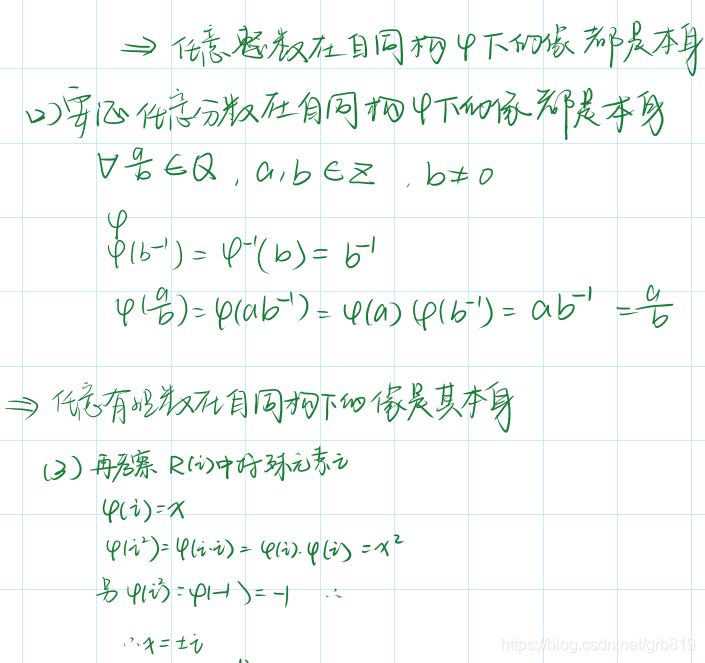 ⇒ 任意整数在自同构φ下的像都是本身
(2) 要证任意分数在自同构φ下的像都是本身
∀ a/b ∈ Q, a, b ∈ Z, b ≠ 0
φ
φ(b⁻¹) = φ⁻¹(b) = b⁻¹
φ(a/b) = φ(ab⁻¹) = φ(a) φ(b⁻¹) = ab⁻¹ = a/b
⇒ 任意有理数在自同构下的像是其本身
(3) 再考察 R(i)中特殊元素i
φ(i) = x
φ(i²) = φ(i·i) = φ(i)·φ(i) = x²
另 φ(i²) = φ(-1) = -1 ∴
∴ x = ±i
https://blog.csdn.net/grb819